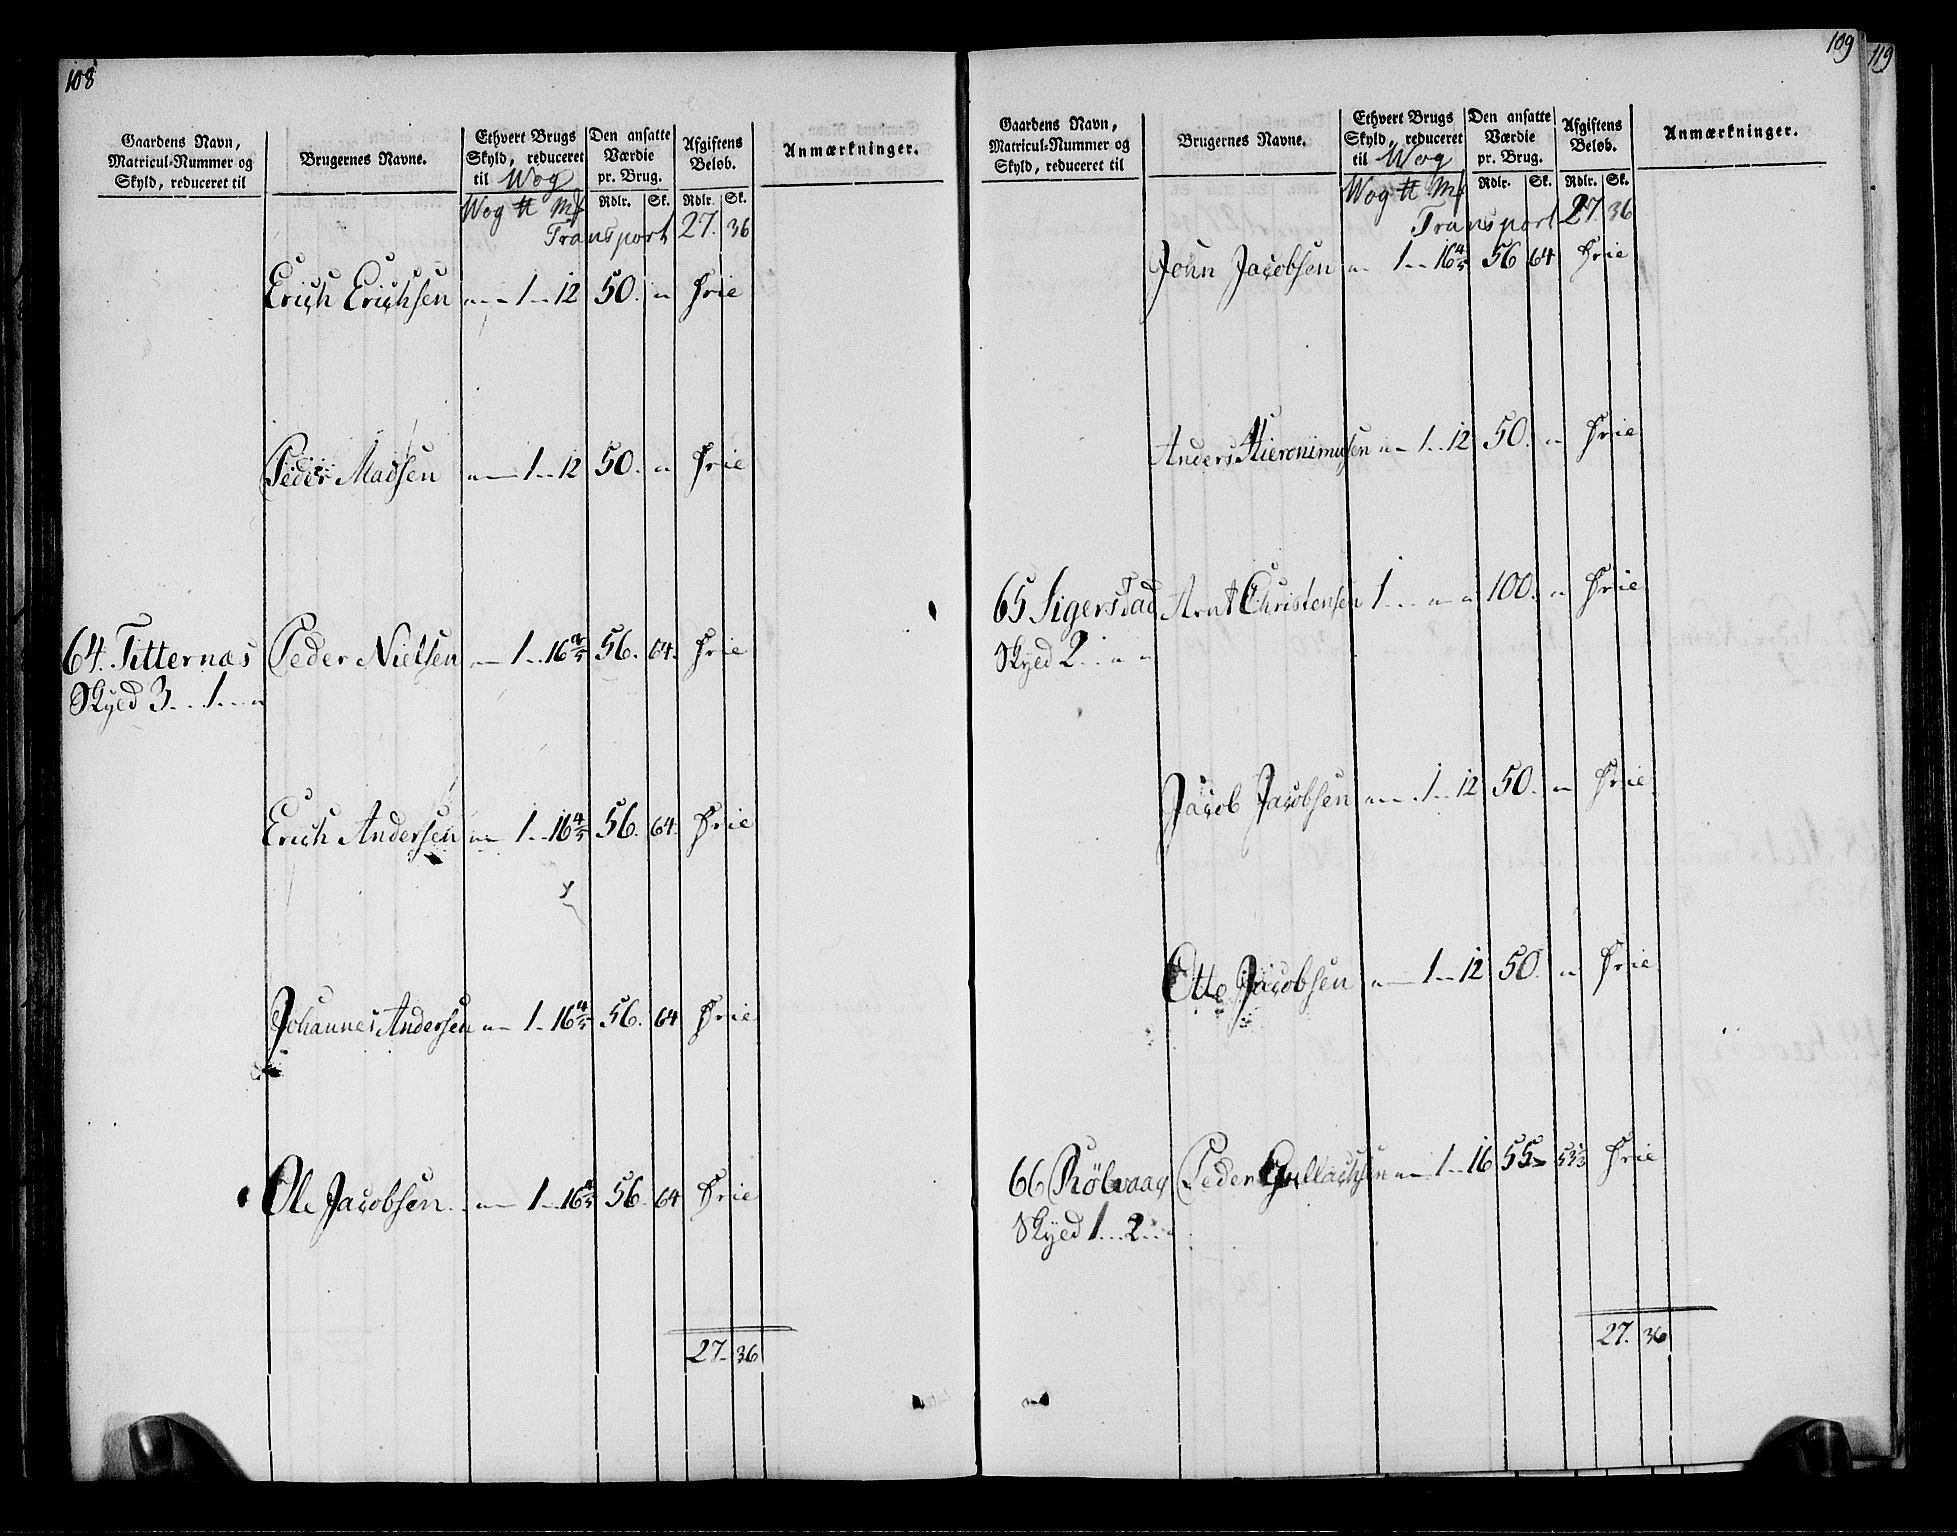 108
Gaardens Navn, Matricul-Nummer og Skyld, reduceret til
Brugernes Navne.
Ethvert Brugs Skyld, reduceret til Wog
Den ansatte Værdie pr. Brug.
Afgiftens Beløb.
Anmærkninger.
Wog ℔ Mk Rdlr. Sk. Rdlr. Sk.
Transport 27. 36
Erich Erichsen " - 1 - 12 50. " Frie
Peder Madsen " - 1 - 12 50. " Frie
64. Titternæs Peder Nielsen " - 1 - 16 4/5 56. 64. Frie
Skyld 3 - 1 - "
Erich Andersen " - 1 - 16 4/5 56. 64. Frie
Johannes Andersen " - 1 - 16 4/5 56. 64 Frie
Ole Jacobsen " - 1 - 16 4/5 56. 64 Frie
27. 36
109
119
Gaardens Navn, Matricul-Nummer og Skyld, reduceret til
Brugernes Navne.
Ethvert Brugs Skyld, reduceret til Wog
Den ansatte Værdie pr. Brug.
Afgiftens Beløb.
Anmærkninger.
Wog ℔ Mk Rdlr. Sk. Rdlr. Sk.
Transport 27 36
John Jacobsen " - 1 - 16 4/5 56 64 Frie
Anders Hieronimusen " - 1 - 12 50. " Frie
65 Sigerstad Arnt Christensen 1 - " - " 100. " Frie
Skyld 2 - " - "
Jacob Jacobsen " - 1 - 12 50. " Frie
Otte Jacobsen " - 1 - 12 50. " Frie
66 Rölvaag Peder Gullachsen " - 1 - 16 55 53 1/3 Frie
Skyld 1 - 2 - "
27. 36